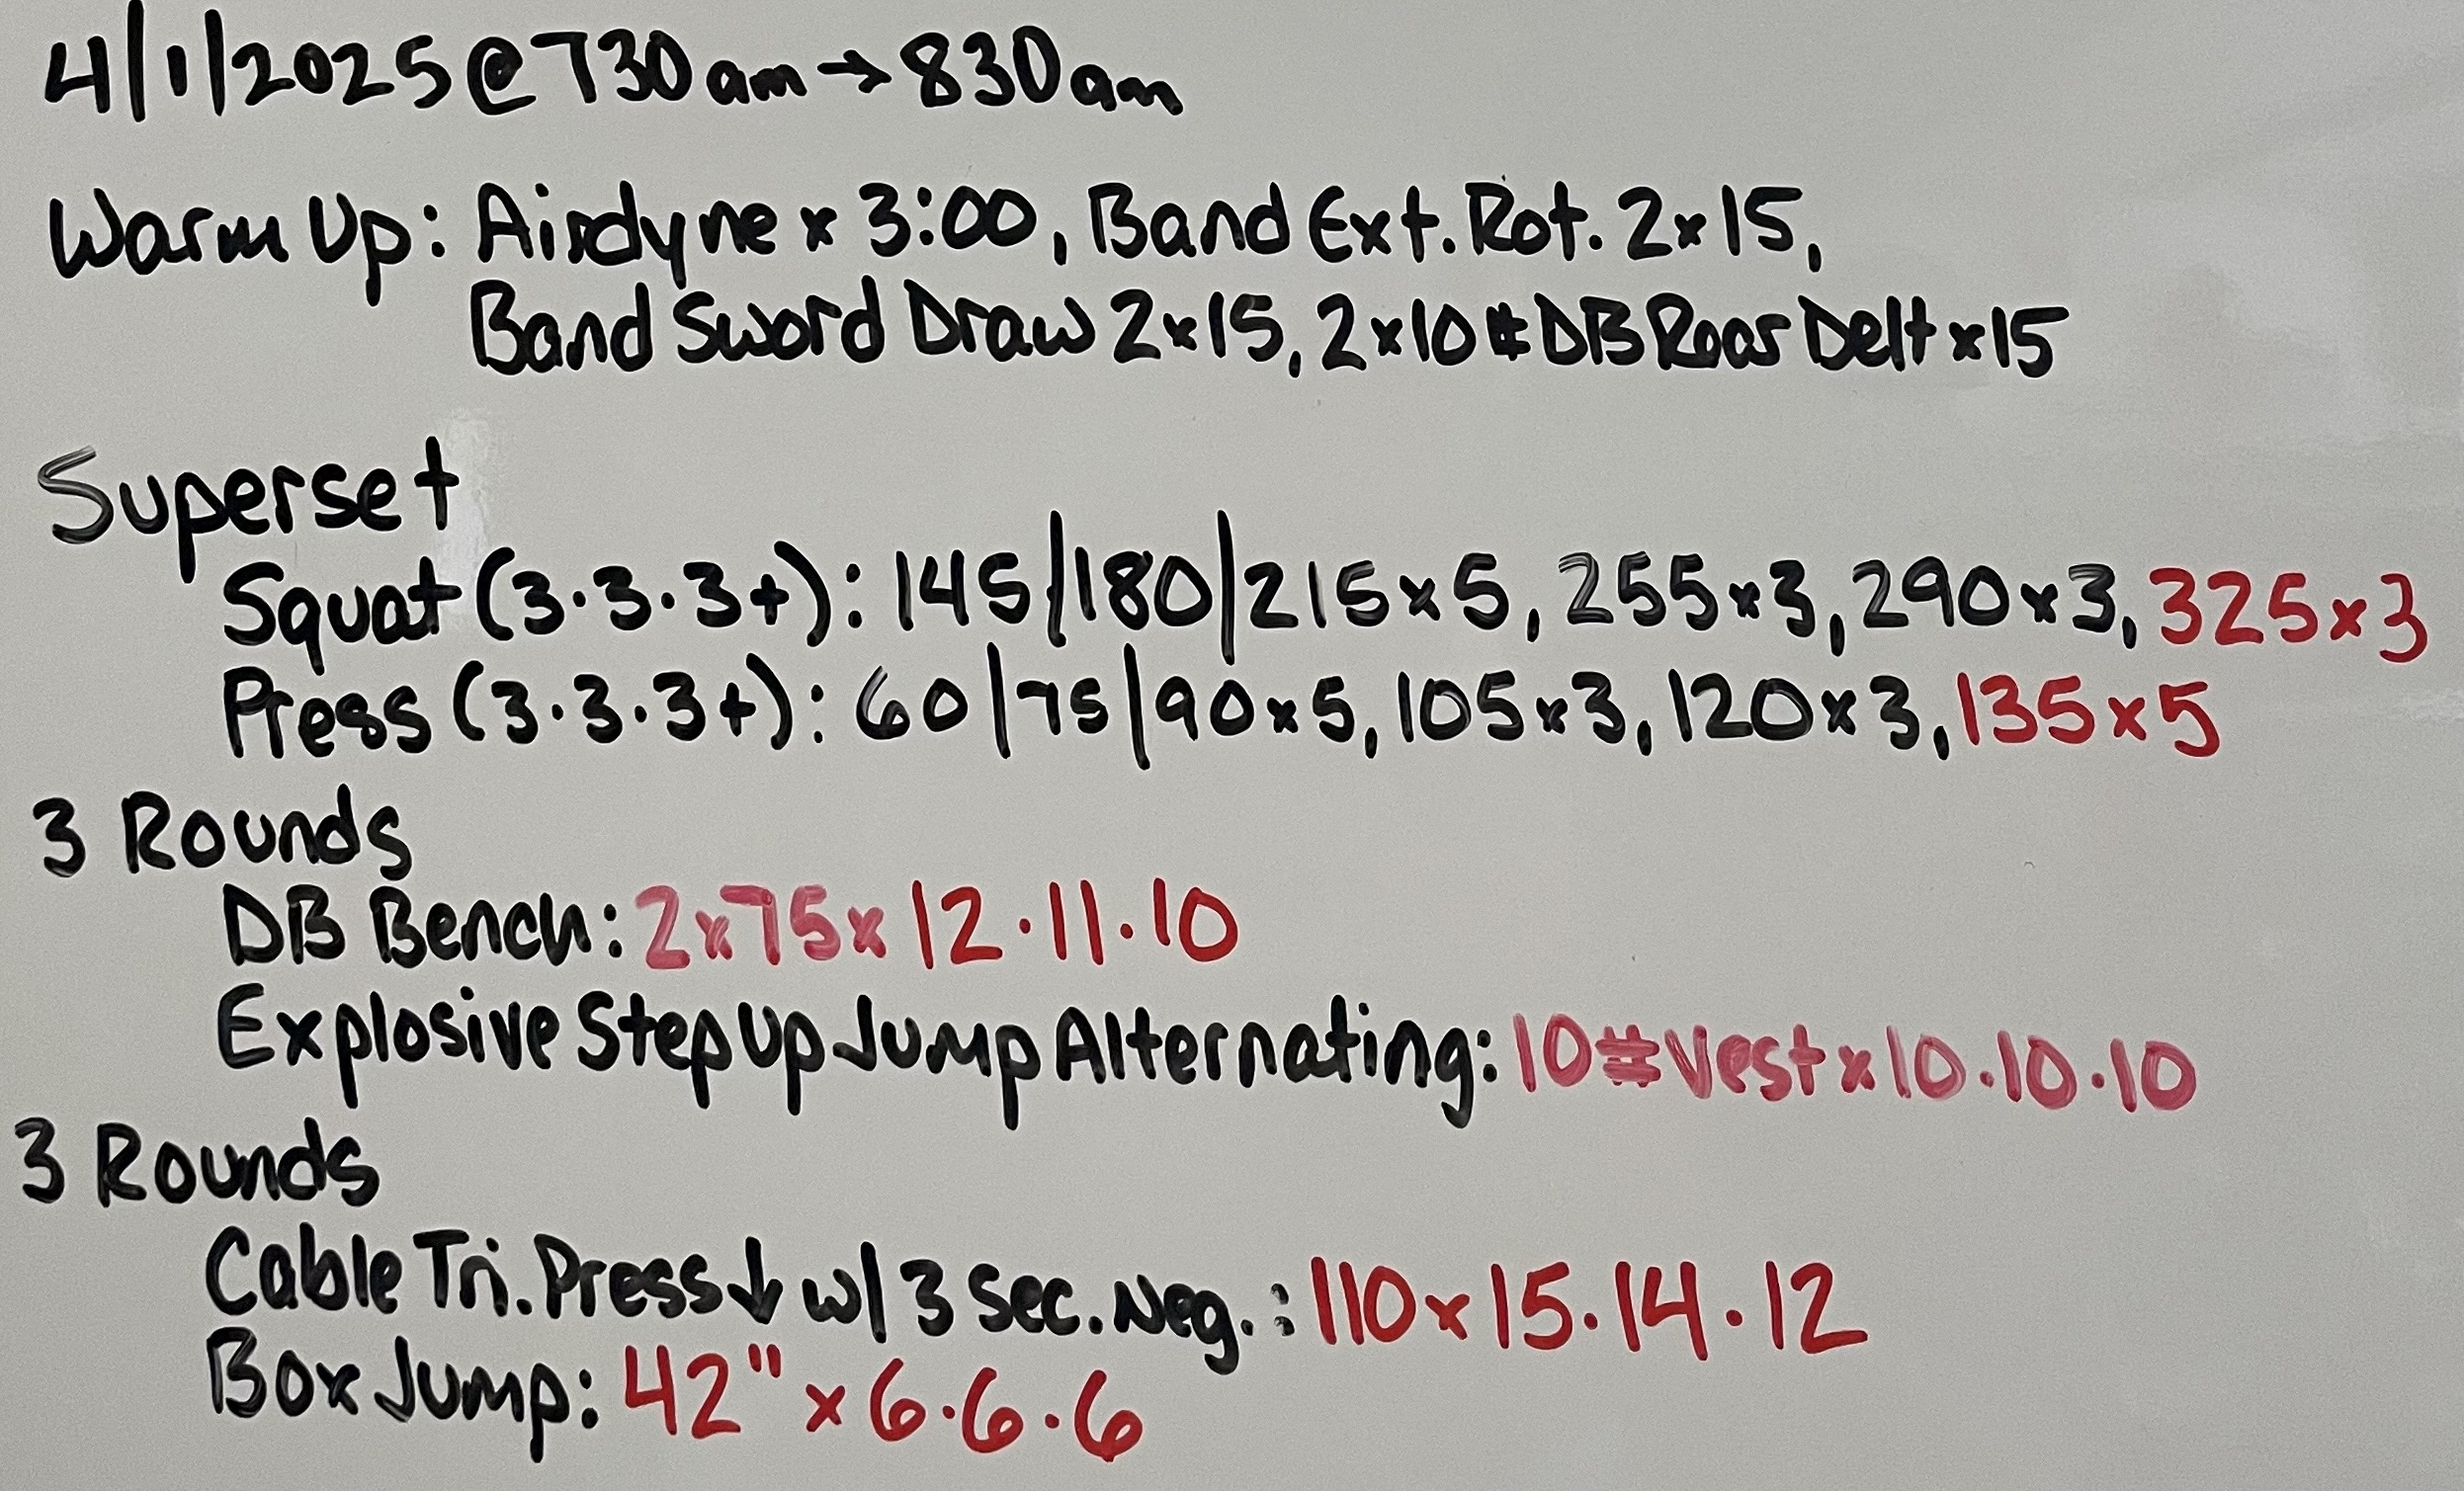 4/1/2025 @ 730am → 830am
Warm Up: Airdyne x 3:00, Band Ext. Rot. 2x15,
Band Sword Draw 2x15, 2x10# DB Rear Delt x15
Superset
Squat (3·3·3+): 145/180/215x5, 255x3, 290x3, 325x3
Press (3·3·3+): 60/75/90x5, 105x3, 120x3, 135x5
3 Rounds
DB Bench: 2x75x12·11·10
Explosive Step Up Jump Alternating: 10# Vest x10·10·10
3 Rounds
Cable Tri. Press ↓ w/ 3 Sec. Neg.: 110x15·14·12
Box Jump: 42" x 6·6·6